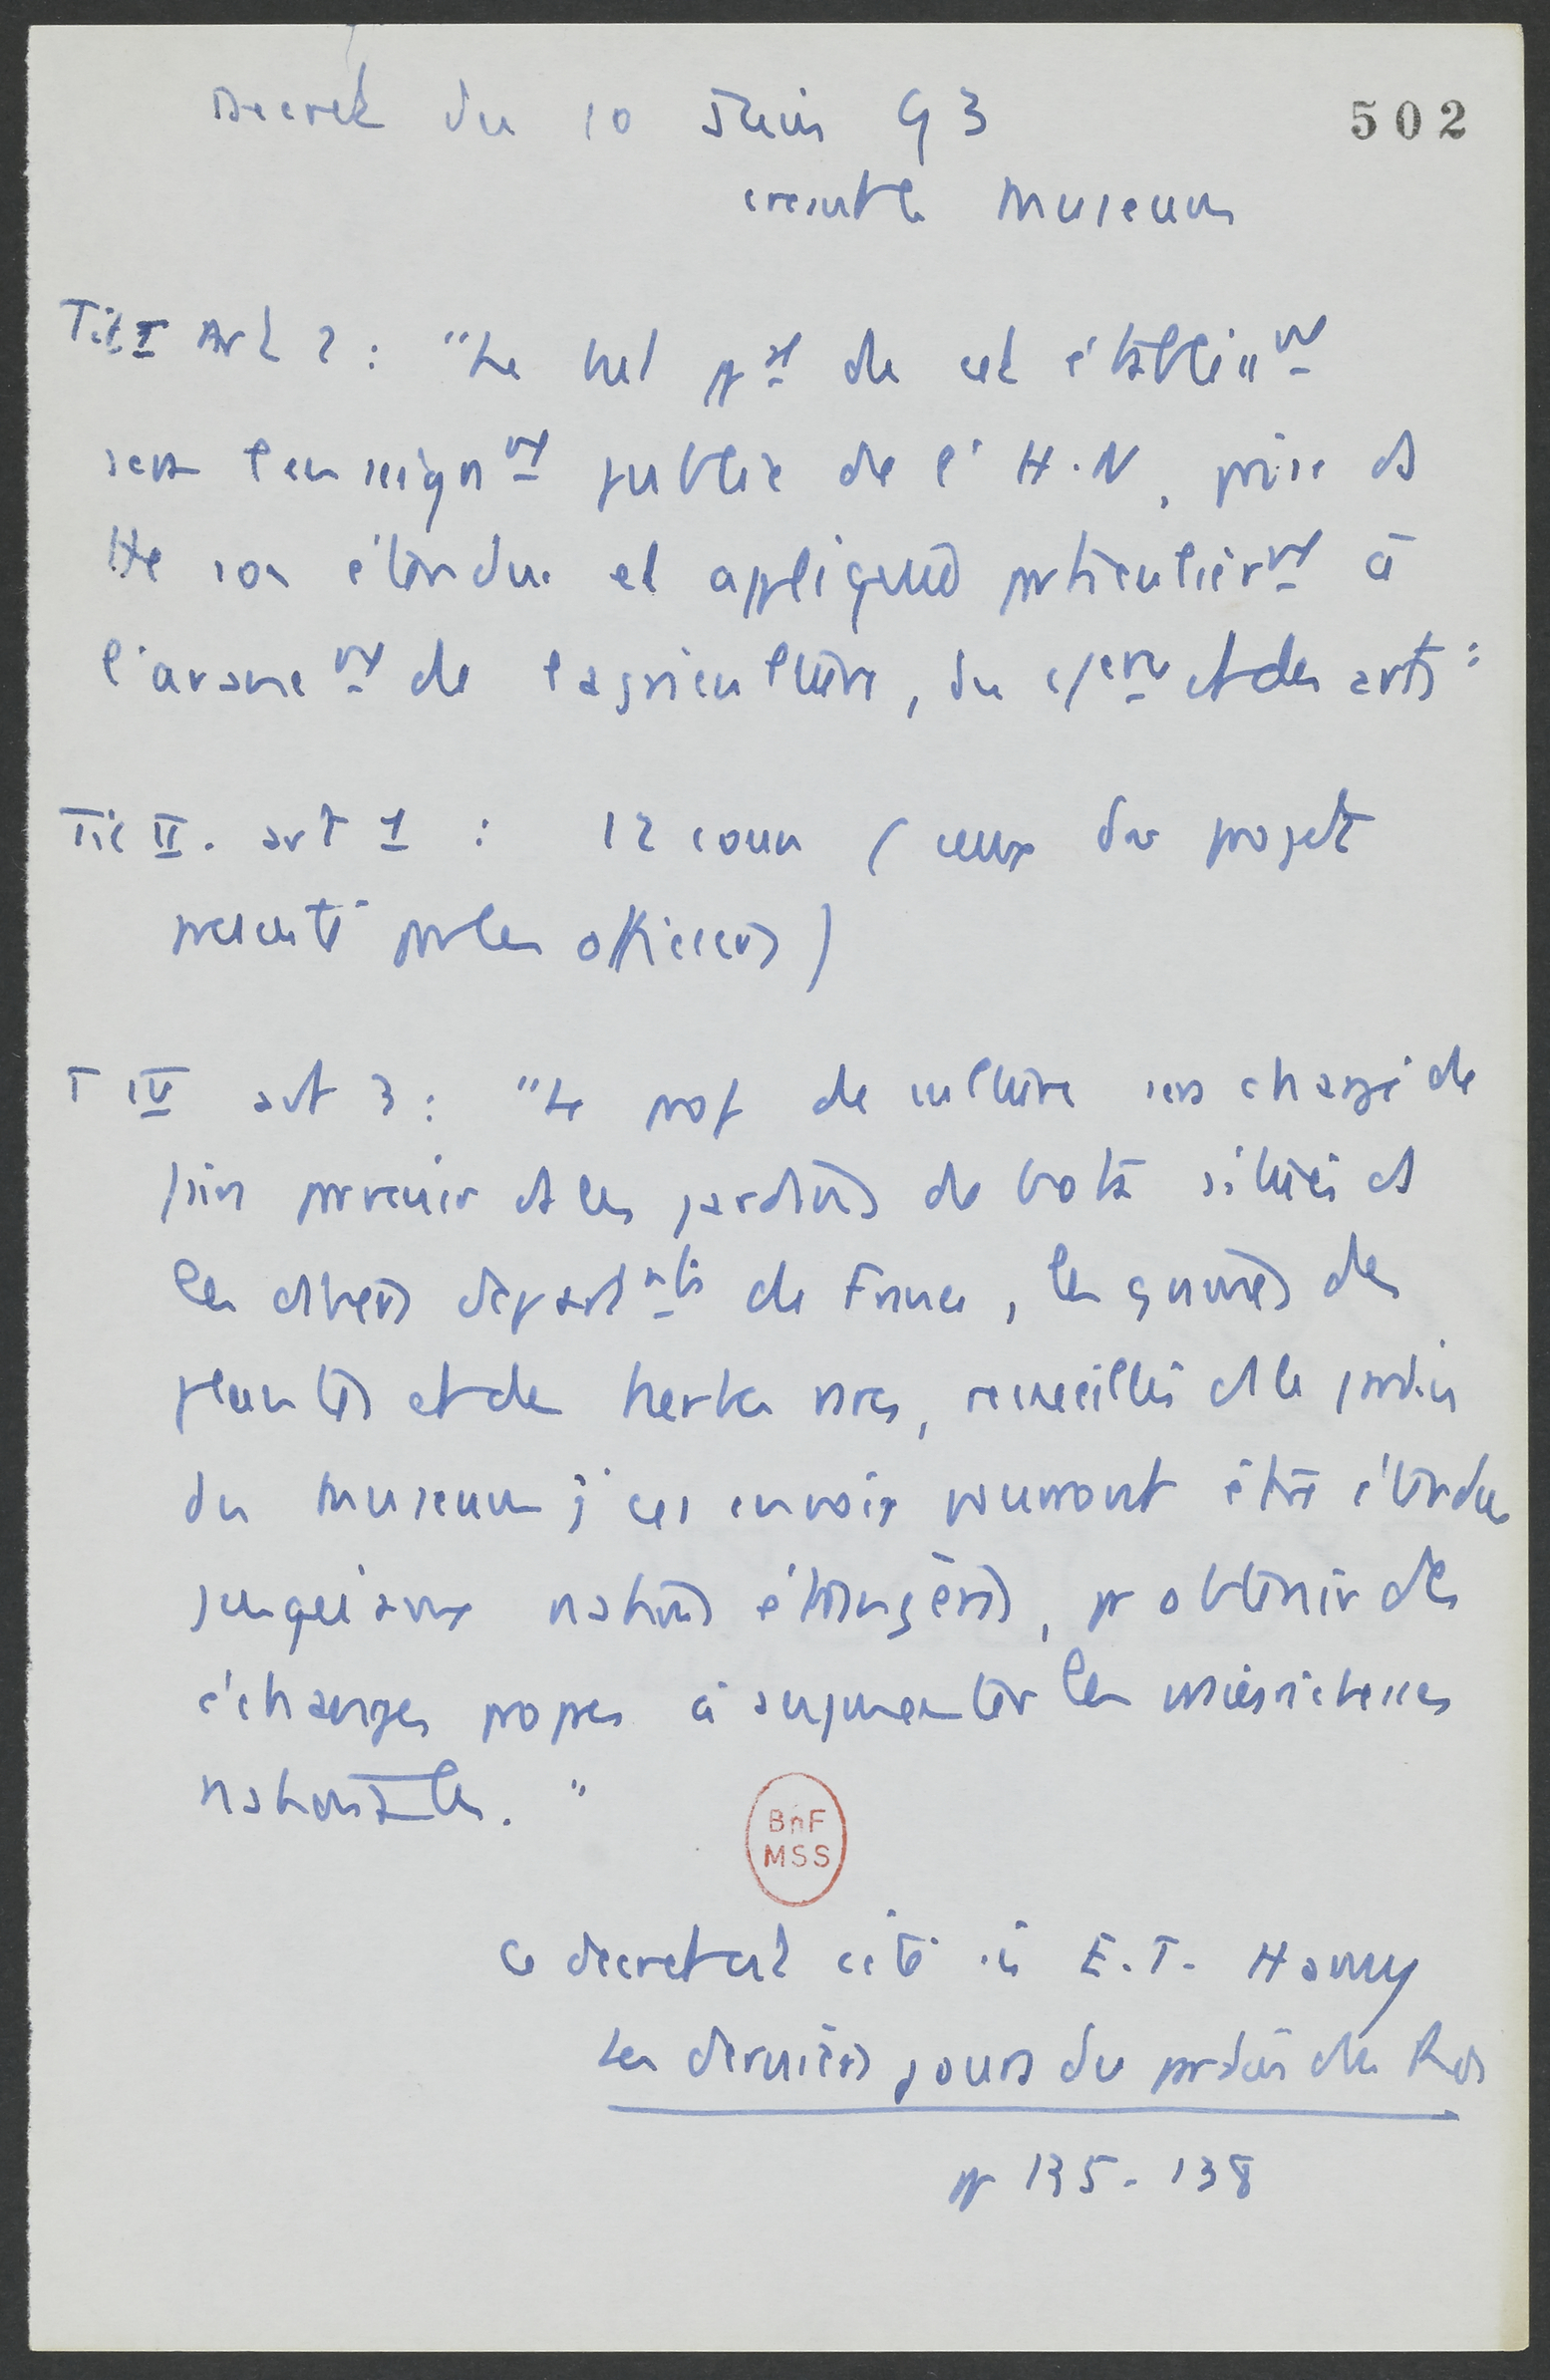 Decret du 10 Juin 93
502
creant le Museum
Tit I Art 2 : "Le but pal de cet établissnt
sera l'enseignnt public de l'H.N, prise ds
tte son étendue et appliquée particulièrnt à
l'avancent de l'agriculture, du c/erce et des arts"
Tit II. art 1 : 12 cours (ceux du projet
presenté par les officiers)
T IV art 3 : "Le prof de culture sera chargé de
faire parvenir ds les jardins de bota situés ds
les divers départnts de France, les graines des
plantes et des herbes rares, recueillies ds le jardin
du Museum ; ces envois pourront être étendus
jusqu'aux nations étrangères, pr obtenir des
échanges propres à augmenter les vraies richesses
nationales."
BnF
MSS
Ce decret est cité in E.T. Hamy
Les derniers jours du jardin du Roi
pp 135-138